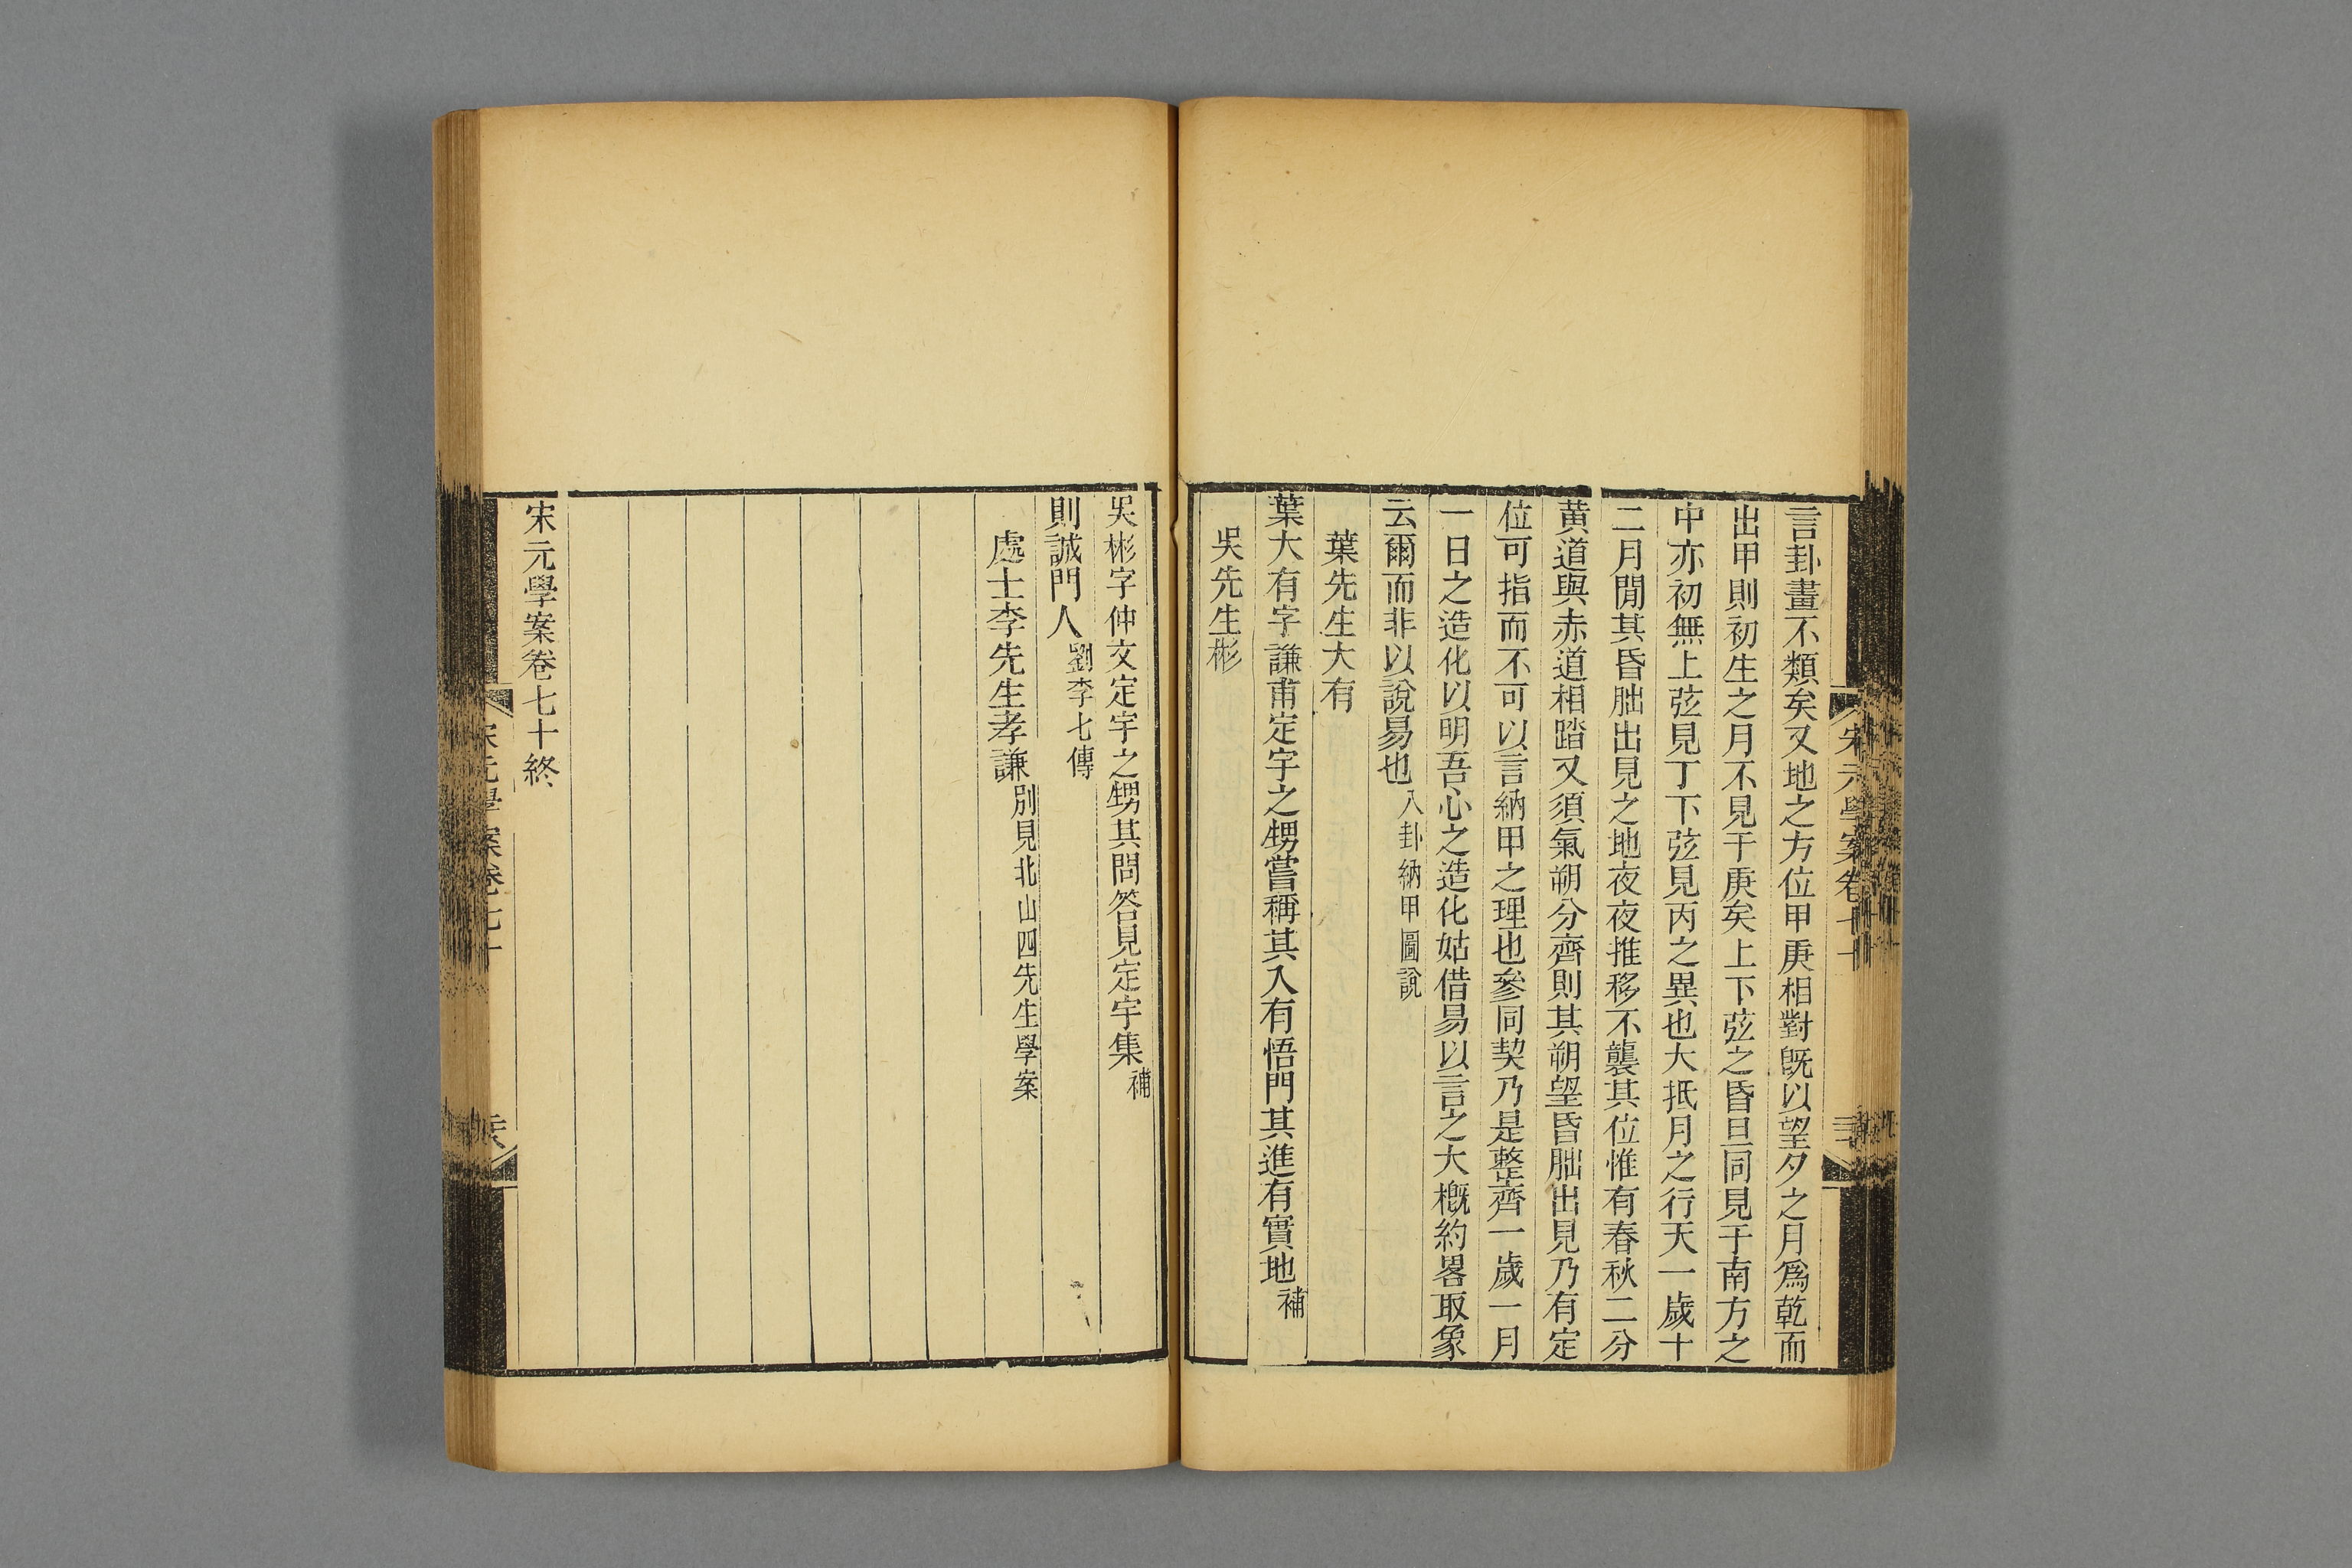 言卦畫不類矣又地之方位甲庚相對旣以望夕之月爲乾而
出甲則初生之月不見于庚矣上下弦之昏旦同見于南方之
中亦初無上弦見丁下弦見丙之異也大抵月之行天一歲十
二月閒其昏朏出見之地夜夜推移不襲其位惟有春秋二分
黃道與赤道相踏又須氣朔分齊則其朔望昏朏出見乃有定
位可指而不可以言納甲之理也參同契乃是整齊一歲一月
一日之造化以明吾心之造化姑借易以言之大槪約畧取象
云爾而非以說易也八卦納甲圖說
葉先生大有
葉大有字謙甫定宇之甥嘗稱其入有悟門其進有實地補
吳先生彬
吳彬字仲文定宇之甥其問答見定宇集補
則誠門人劉李七傳
處士李先生孝謙別見北山四先生學案
宋元學案卷七十終
宋元學案卷七十
宋元學案卷七十